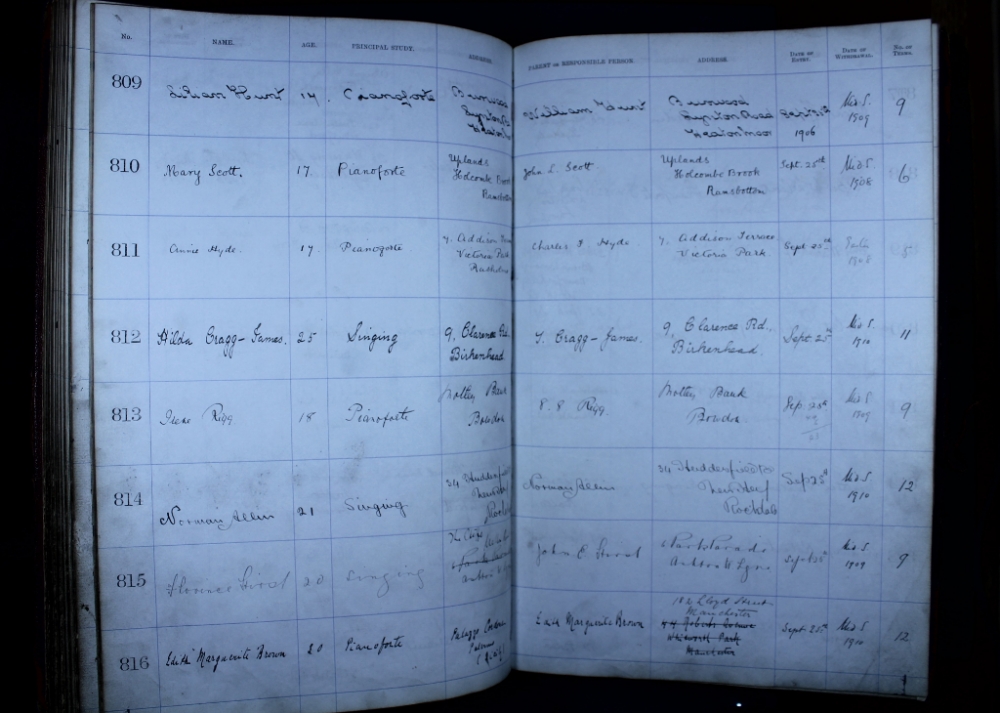 No. NAME. AGE. PRINCIPAL STUDY. ADDRESS. PARENT OR RESPONSIBLE PERSON. ADDRESS. DATE OF ENTRY. DATE OF WITHDRAWAL. No. OF TERMS.
809 Lilian Hurst 14. Pianoforte William Hurst Sept 25th Mid S. 9
Road
Heaton Moor 1906 1909
810 Mary Scott. 17. Pianoforte Uplands John S. Scott Uplands Sept. 25th Mid S 6
Holcombe Brook Holcombe Brook 1908
Ramsbottom Ramsbottom
811 Annie Hyde. 17. Pianoforte 7. Addison Charles F. Hyde. 7. Addison Terrace Sept 25th
Victoria Park Victoria Park. 1908
Rusholme
812 Hilda Cragg-James. 25 Singing 9, Clarence Rd. T. Cragg-James. 9, Clarence Rd., Sept 25th Mid S. 11
Birkenhead Birkenhead. 1910
813 Irene Rigg 18 Pianoforte Bank Rigg Bank Sep. 25th Mid S 9
Bowdon Bowdon 1909
814 Norman Allin 21 Singing 34 Norman Allin 34 Sep 25th Mid S 12
1910
Rochdale
815 Florence 20 Singing John E. Sept 25th Mid S 9
1909
816 Edith Marguerite Brown 20 Pianoforte Edith Marguerite Brown Lloyd Street Sept. 25th Mid S 12
Palermo Manchester 1910
(Italy) Whitworth Park
Manchester